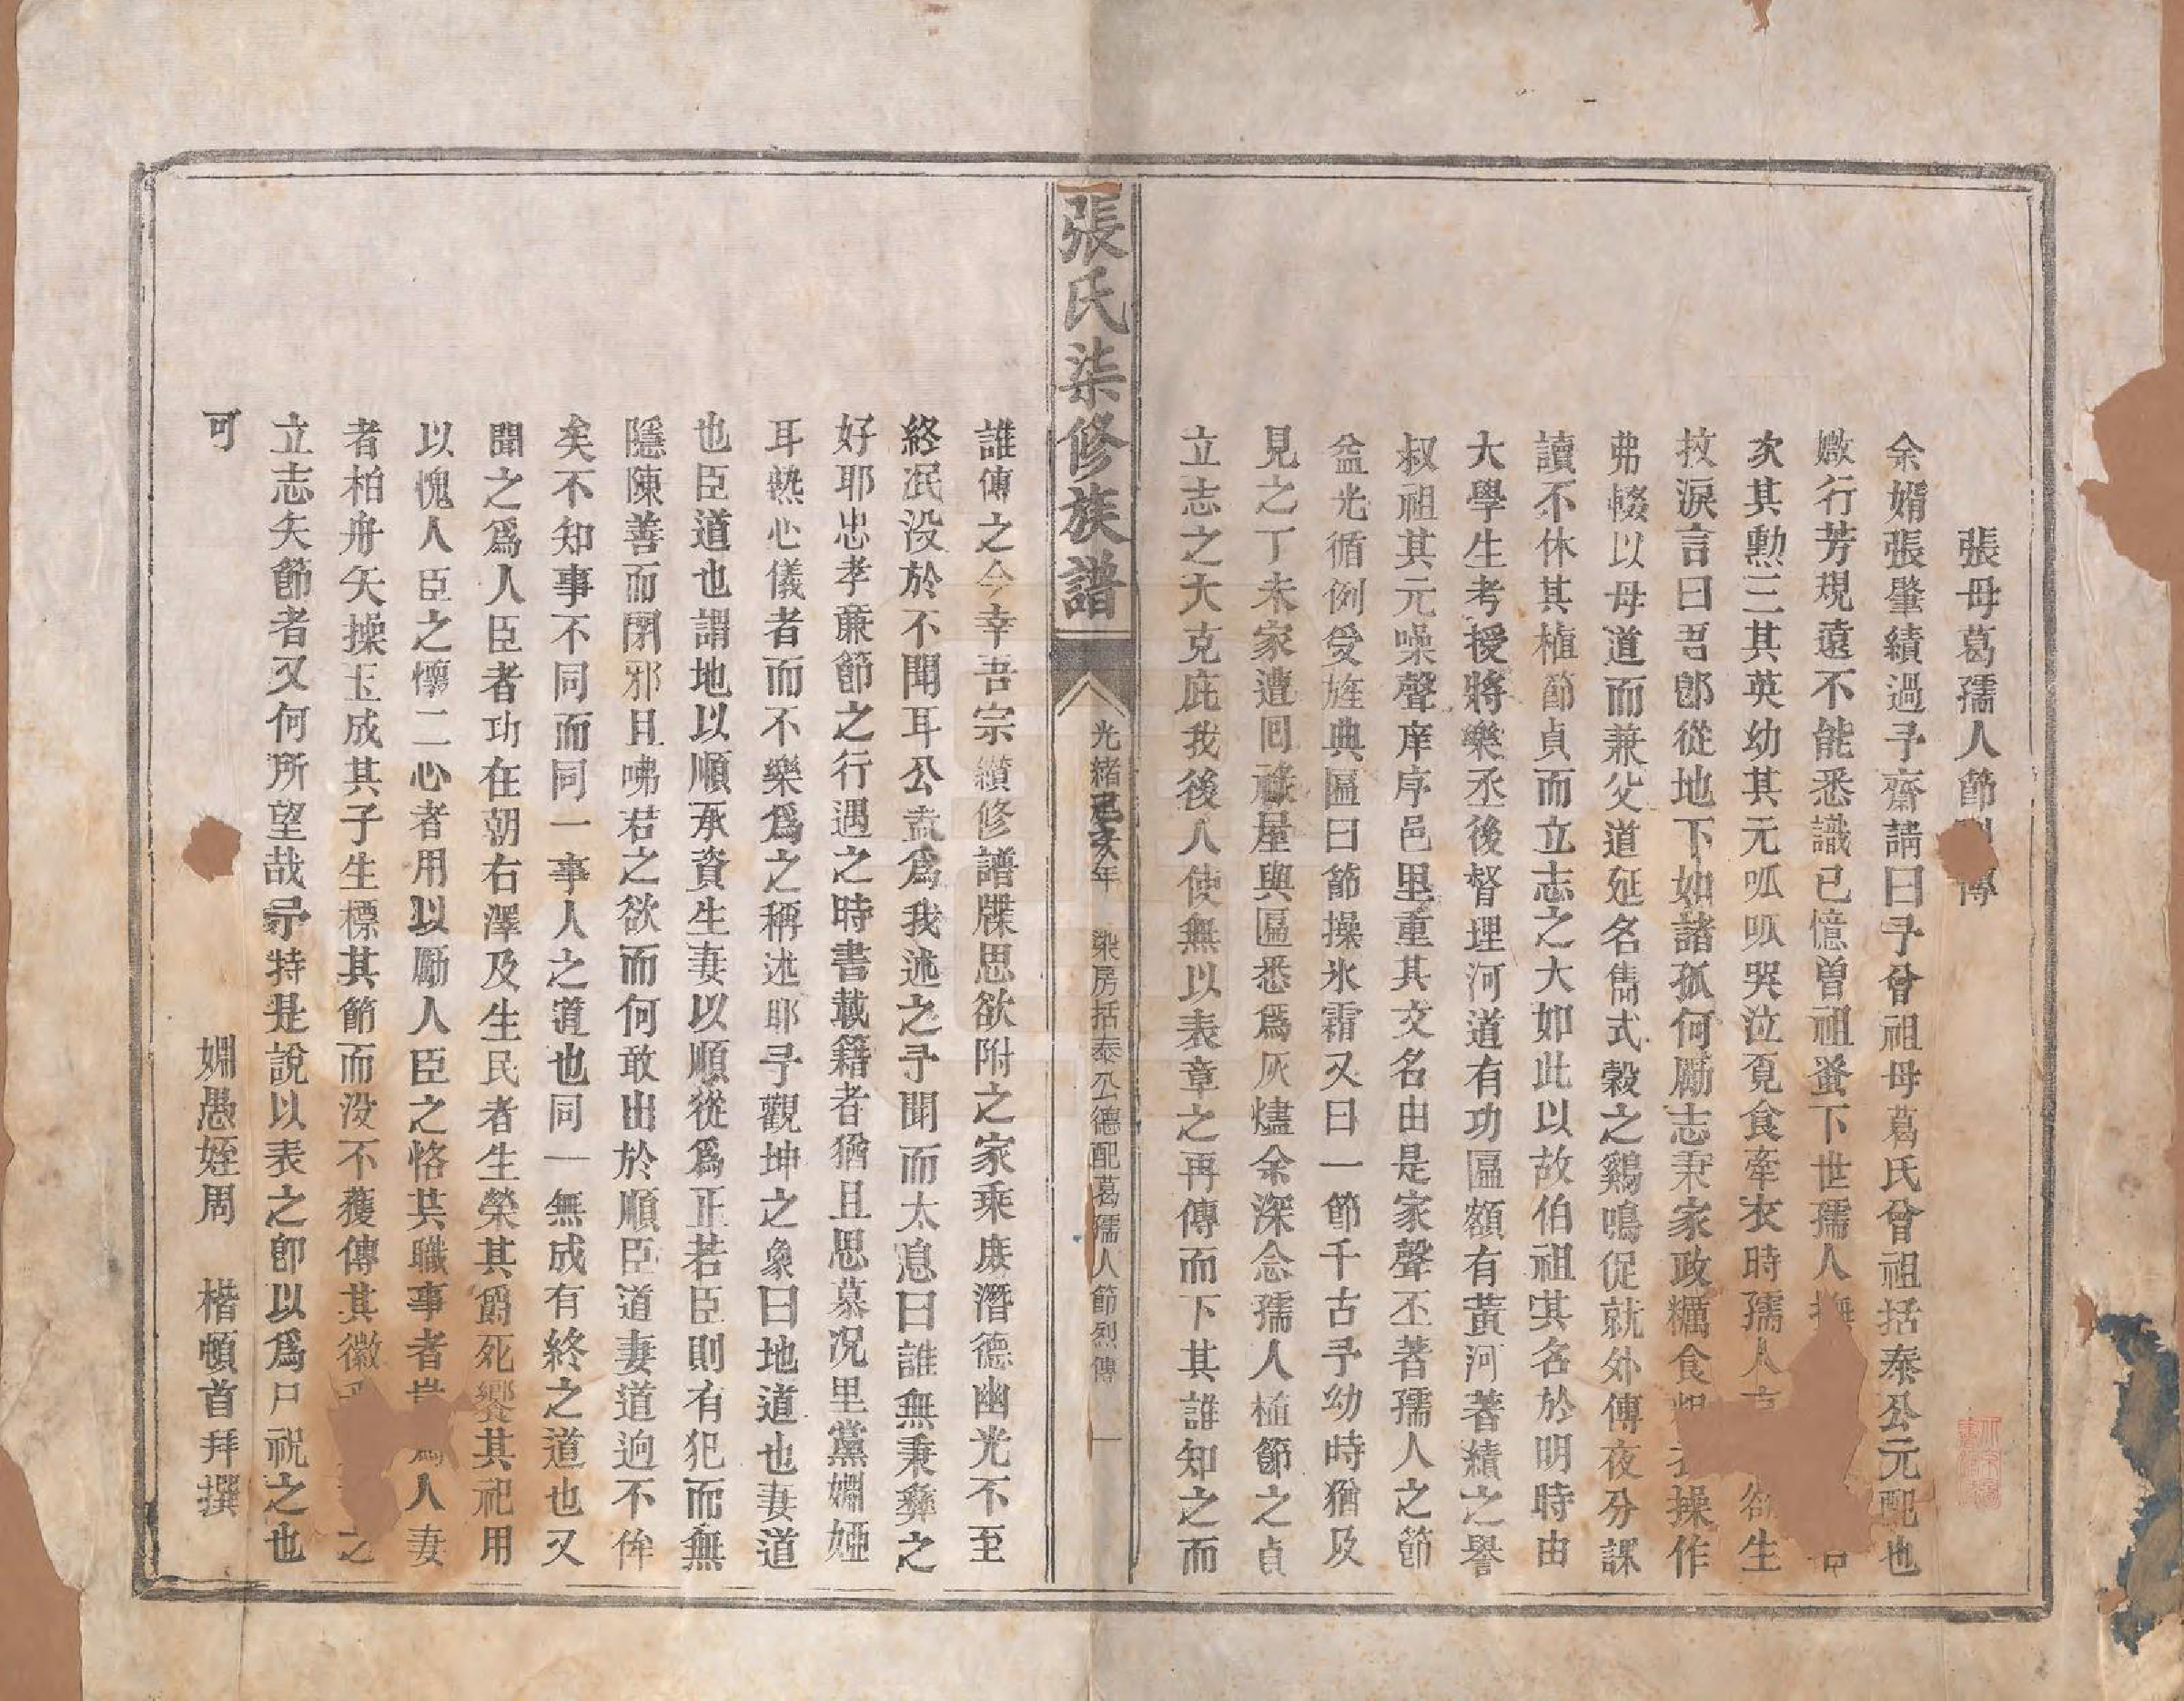 張母葛孺人節
余婿張肇績過予齋請曰予曾祖母葛氏曾祖括泰公元配也
嫩行芳規遠不能悉識已憶曽祖蚤下世孺人
次其勳三其英幼其元呱呱哭泣覓食牽衣時孺人 欲生
抆淚言曰吾郎從地下如諸孤何勵志秉家政糲食粗衣操作
弗輟以母道而兼父道延名儁式榖之鷄鳴促就外傅夜分課
讀不休其植節貞而立志之大如此以故伯祖其名於明時由
大學生考授將樂丞後督理河道有功匾額有黃河著績之譽
叔祖其元噪聲庠序邑里重其文名由是家聲丕著孺人之節
益光循例受旌典匾曰節操氷霜又曰一節千古予幼時猶及
見之丁未家遭囘祿屋與匾悉爲灰燼余深念孺人植節之貞
立志之大克庇我後人使無以表章之再傳而下其誰知之而
張氏柒修族譜
光緒己亥年 梁房括泰公德配葛孺人節烈傳 一
誰傳之今幸吾宗纘修譜牒思欲附之家乘庶潛德幽光不至
終泯没於不聞耳公盍爲我述之予聞而太息曰誰無秉彝之
好耶忠孝亷節之行遇之時書載籍者猶且思慕况里黨婣婭
耳熱心儀者而不樂爲之稱述耶予觀坤之象曰地道也妻道
也臣道也謂地以順承資生妻以順從爲正若臣則有犯而無
隱陳善而閉邪且咈君之欲而何敢出於順臣道妻道逈不侔
矣不知事不同而同一事人之道也同一無成有終之道也又
聞之爲人臣者功在朝右澤及生民者生榮其爵死饗其祀用
以愧人臣之懷二心者用以勵人臣之恪其職事者世 爲人妻
者柏舟矢操玉成其子生標其節而没不獲傳其徽 之
立志矢節者又何所望哉予特是說以表之即以爲尸祝之也
可
婣愚姪周 楷頓首拜撰